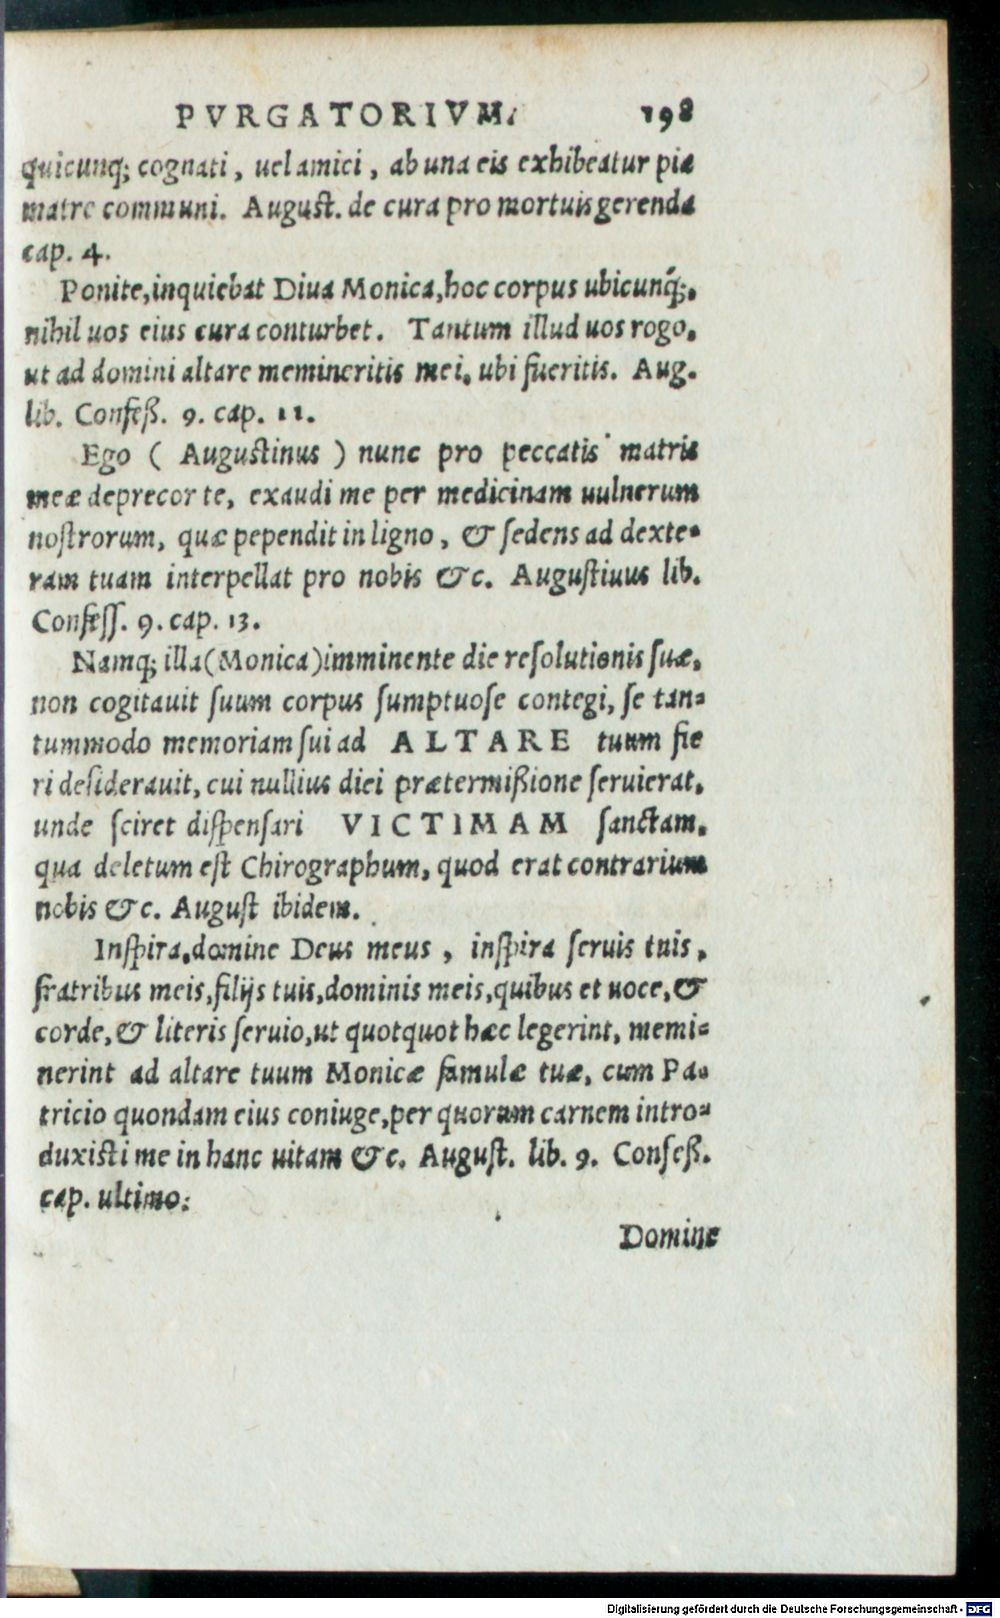 PVRGATORIVM. 198
quicunq; cognati, uel amici, ab una eis exhibeatur pia
matre communi. August. de cura pro mortuis gerenda
cap. 4.
Ponite, inquiebat Diua Monica, hoc corpus ubicunq́;,
nihil uos eius cura conturbet. Tantum illud uos rogo,
ut ad domini altare memineritis mei, ubi fueritis. Aug.
lib. Confeß. 9. cap. 11.
Ego ( Augustinus ) nunc pro peccatis matris
meæ deprecor te, exaudi me per medicinam uulnerum
noſtrorum, quæ pependit in ligno, & ſedens ad dexte-
ram tuam interpellat pro nobis &c. Auguſtiuus lib.
Confeſſ. 9. cap. 13.
Namq; illa (Monica) imminente die reſolutionis ſuæ,
non cogitauit ſuum corpus ſumptuoſe contegi, ſe tan-
tummodo memoriam ſui ad ALTARE tuum fie
ri deſiderauit, cui nullius diei prætermißione ſeruierat,
unde ſciret diſpenſari VICTIMAM ſanctam,
qua deletum eſt Chirographum, quod erat contrarium
nobis &c. Auguſt ibidem.
Inſpira, domine Deus meus, inſpira ſeruis tuis,
fratribus meis, filijs tuis, dominis meis, quibus et uoce, &
corde, & literis ſeruio, ut quotquot hæc legerint, memi-
nerint ad altare tuum Monicæ famulæ tuæ, cum Pa-
tricio quondam eius coniuge, per quorum carnem intro-
duxisti me in hanc uitam &c. Auguſt. lib. 9. Confeß.
cap. ultimo.
Domine
Digitalisierung gefördert durch die Deutsche Forschungsgemeinschaft - DFG